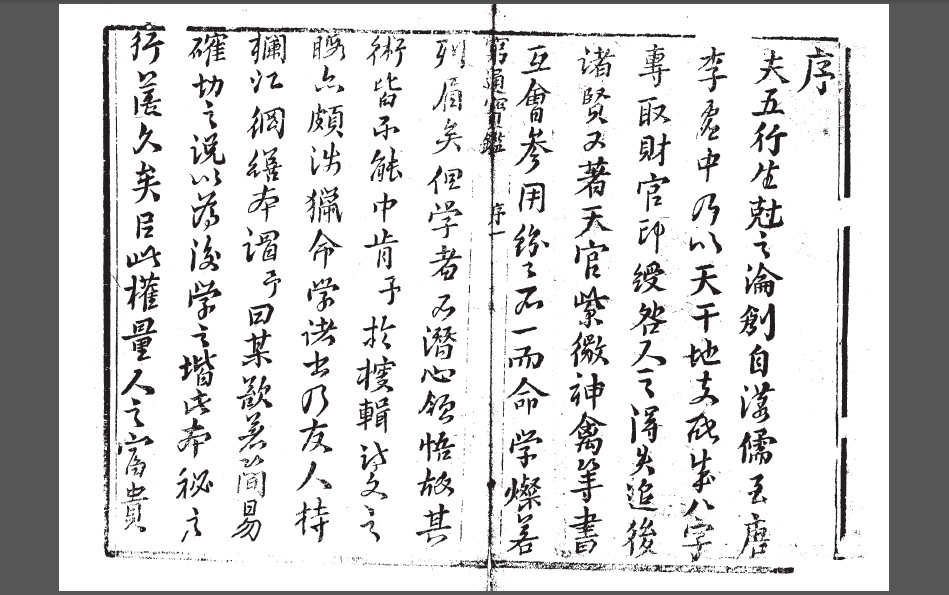 序
夫五行生尅之淪創自漢儒至唐
李虛中乃以天干地支配成八字
專取財官印綬咎人之得失迨後
諸賢又著天官紫微神禽等書
互會參用紛々不一而命學燦若
窮通寶鑑 序一
列眉矣但學者不潛心領悟故其
術皆不能中肯予於搜輯詩文之
暇亦頗涉獵命學諸出乃友人持
欄江網繕本謂予曰某歡其簡易
確切之說以為後學之堦此本秘之
行篋久矣臣此權量人之富貴